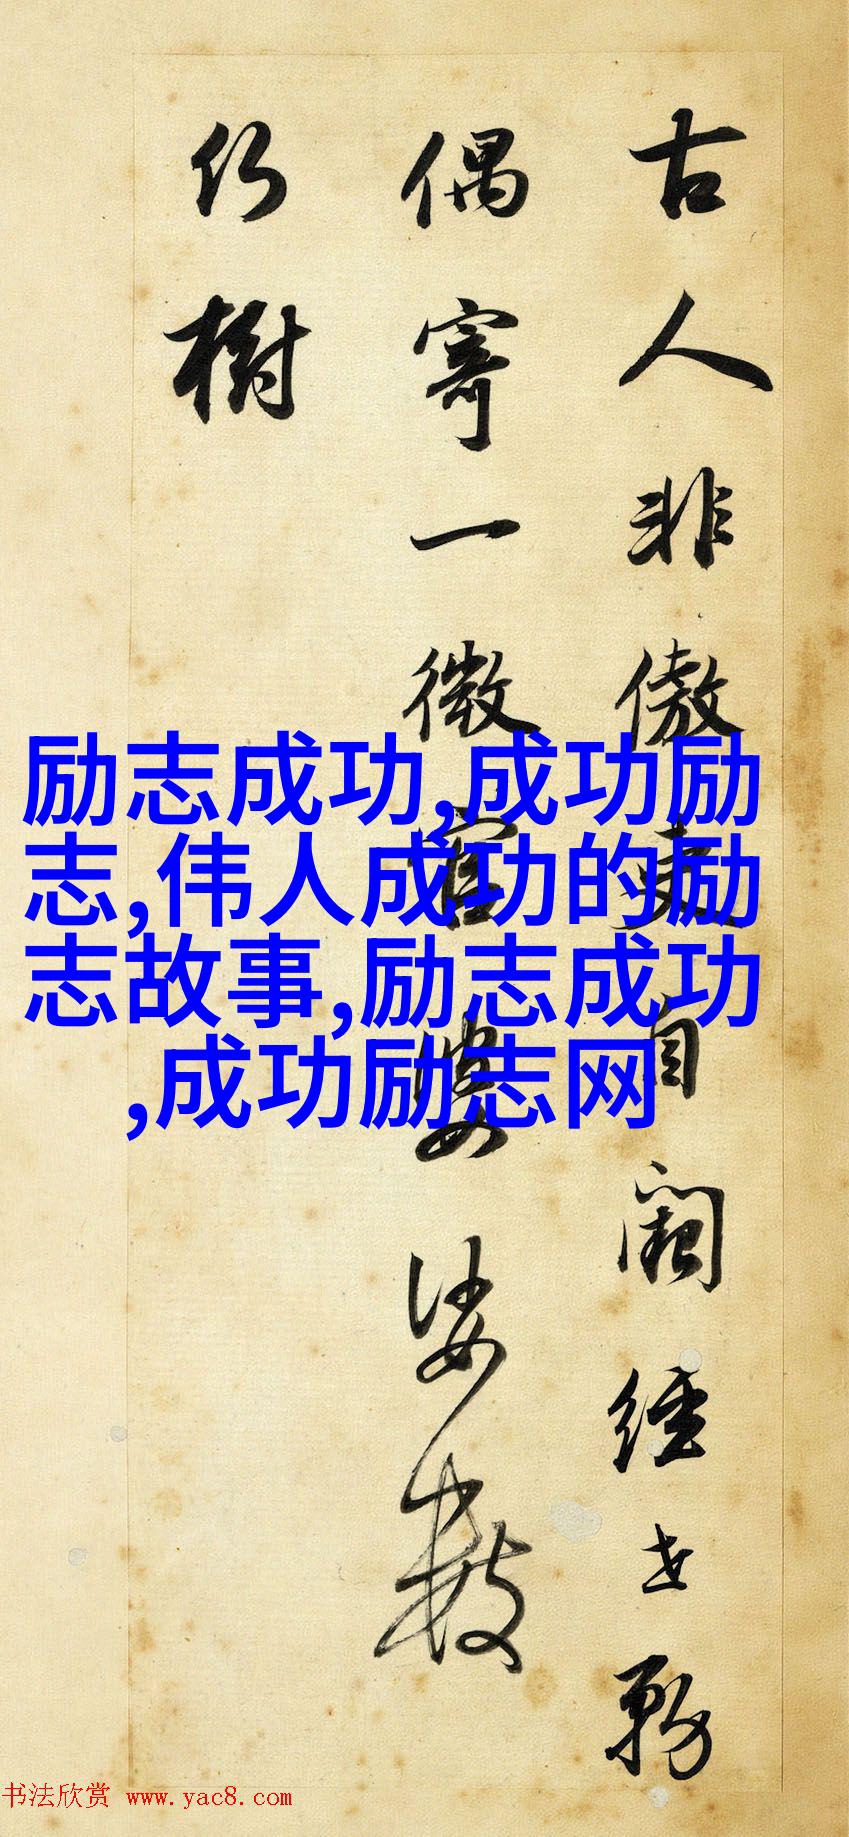 古人非傲吏自闕經世務
偶寄一微官婆娑數
樹
励志成功,成功励
志,伟人成功的励
志故事,励志成功
,成功励志网
书法欣赏 www.yac8.com